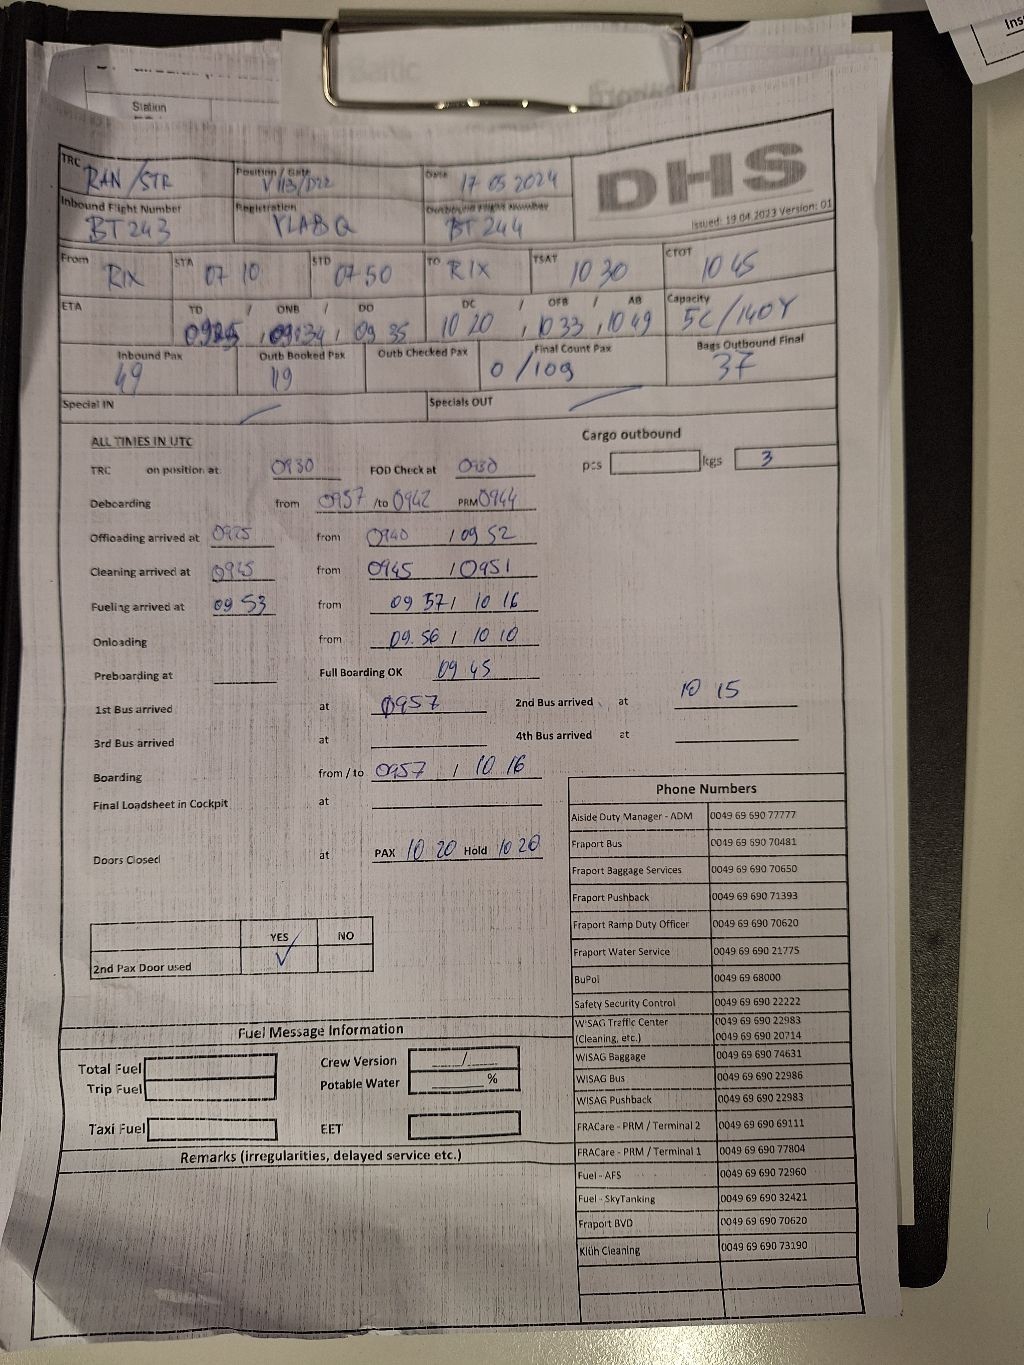 Baltic
Station
Ins
TRC RAN/STR Position / Gate V113/D22 Date 17 05 2024 DHS
Issued: 19 04 2023 Version: 01
Inbound Flight Number BT243 Registration YLABQ Outbound Flight Number BT 244
From RIX STA 07 10 STD 07 50 TO RIX TSAT 10 30 CTOT 10 45
ETA TD / ONB / DO DC / OFB / AB Capacity
09:34 , 09 35 10 20 , 10 33 , 10 49 5C/140Y
Inbound Pax Outb Booked Pax Outb Checked Pax Final Count Pax Bags Outbound Final
49 119 0 /109 37
Special IN Specials OUT
ALL TIMES IN UTC Cargo outbound
TRC on position at 0930 FOD Check at 0930 pcs kgs 3
Deboarding from /to 0942 PRM 0944
Offloading arrived at 0925 from 0940 / 09 52
Cleaning arrived at 0945 from 0945 / 0951
Fueling arrived at 09 53 from 09 57 / 10 16
Onloading from 09.56 / 10 10
Preboarding at Full Boarding OK 09 45
1st Bus arrived at 0957 2nd Bus arrived at 10 15
3rd Bus arrived at 4th Bus arrived at
Boarding from / to 0957 / 10 16
Final Loadsheet in Cockpit at
Doors Closed at PAX 10 20 Hold 10 20
YES NO
2nd Pax Door used ✓
Fuel Message Information
Total Fuel Crew Version /
Trip Fuel Potable Water %
Taxi Fuel EET
Remarks (irregularities, delayed service etc.)
Phone Numbers
Aiside Duty Manager - ADM 0049 69 690 77777
Fraport Bus 0049 69 690 70481
Fraport Baggage Services 0049 69 690 70650
Fraport Pushback 0049 69 690 71393
Fraport Ramp Duty Officer 0049 69 690 70620
Fraport Water Service 0049 69 690 21775
BuPol 0049 69 68000
Safety Security Control 0049 69 690 22222
WISAG Traffic Center 0049 69 690 22983
(Cleaning, etc.) 0049 69 690 20714
WISAG Baggage 0049 69 690 74631
WISAG Bus 0049 69 690 22986
WISAG Pushback 0049 69 690 22983
FRACare - PRM / Terminal 2 0049 69 690 69111
FRACare - PRM / Terminal 1 0049 69 690 77804
Fuel - AFS 0049 69 690 72960
Fuel - SkyTanking 0049 69 690 32421
Fraport BVD 0049 69 690 70620
Klüh Cleaning 0049 69 690 73190